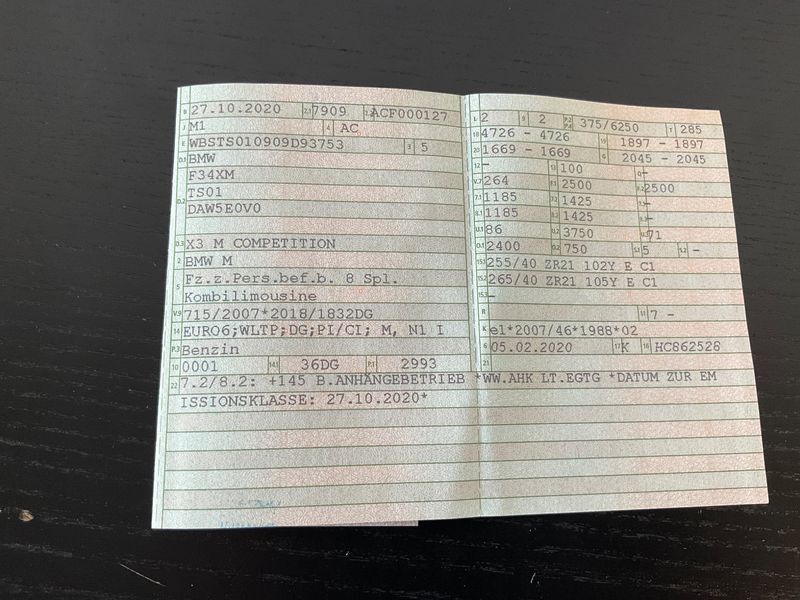 B 27.10.2020 2.1 7909 2.2 ACF000127
J M1 4 AC
E WBSTS010909D93753 3 5
D.1 BMW
D.2 F34XM
TS01
DAW5E0V0
D.3 X3 M COMPETITION
2 BMW M
5 Fz.z.Pers.bef.b. 8 Spl.
Kombilimousine
V.9 715/2007*2018/1832DG
14 EURO6;WLTP;DG;PI/CI; M, N1 I
P.3 Benzin
10 0001 14.1 36DG P.1 2993
22 7.2/8.2: +145 B.ANHÄNGEBETRIEB *WW.AHK LT.EGTG *DATUM ZUR EM
ISSIONSKLASSE: 27.10.2020*
L 2 9 2 P.2 P.4 375/6250 T 285
18 4726 - 4726 19 1897 - 1897
20 1669 - 1669 G 2045 - 2045
12 - 13 100 Q -
V.7 264 F.1 2500 F.2 2500
7.1 1185 7.2 1425 7.3 -
8.1 1185 8.2 1425 8.3 -
U.1 86 U.2 3750 U.3 71
O.1 2400 O.2 750 S.1 5 S.2 -
15.1 255/40 ZR21 102Y E C1
15.2 265/40 ZR21 105Y E C1
15.3 -
R 11 7 -
K e1*2007/46*1988*02
6 05.02.2020 17 K 16 HC862528
21